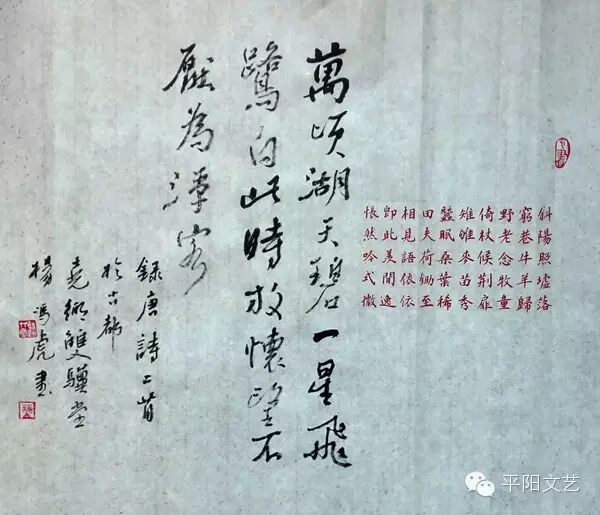 斜陽照墟落
窮巷牛羊歸
野老念牧童
倚杖候荆扉
雉雊麥苗秀
蠶眠桑葉稀
田夫荷鋤至
相見語依依
即此羨閒逸
悵然吟式微
萬頃湖天碧一星飛
鷺白此時放懷望不
厭為浮客
錄唐詩二首
於古都
堯鄉雙驥堂
楊馮虎書
平阳文艺